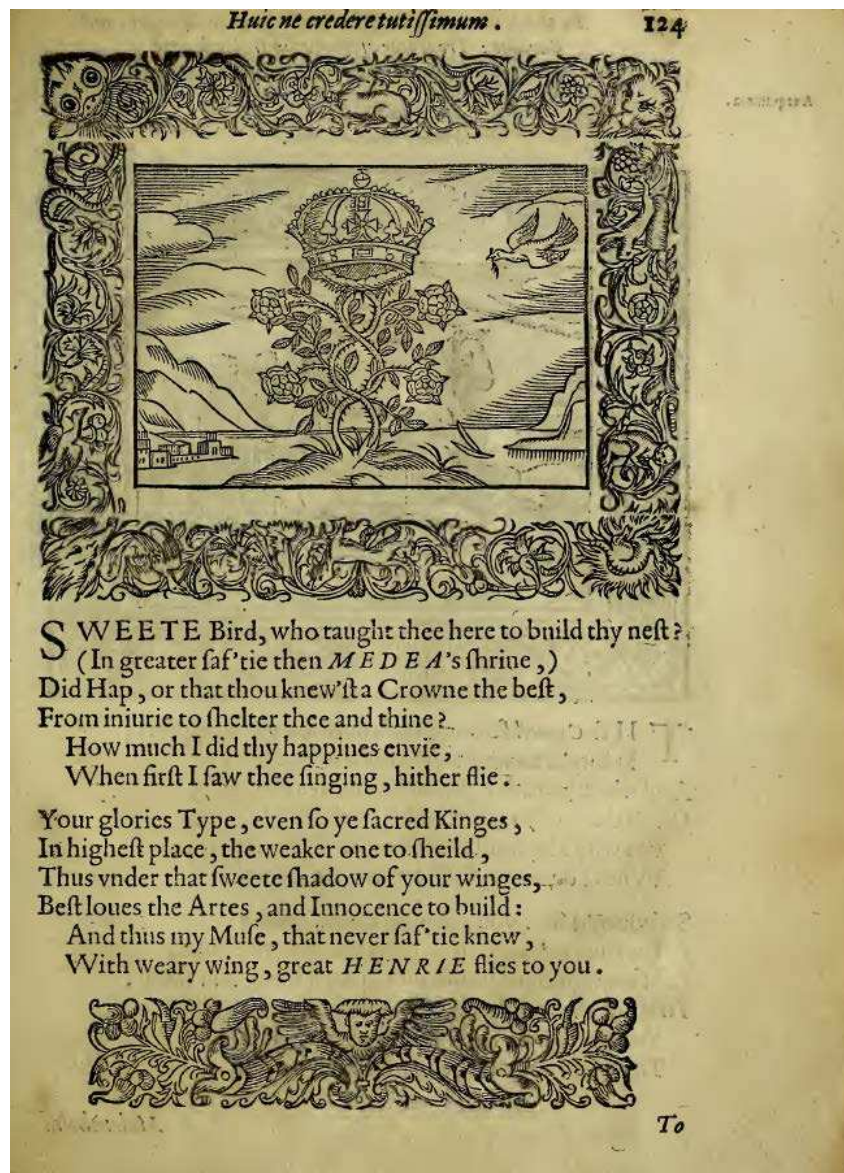 Huic ne credere tutiſſimum.
124
SWEETE Bird, who taught thee here to build thy neſt?
(In greater ſaf'tie then MEDEA's ſhrine,)
Did Hap, or that thou knew'ſt a Crowne the beſt,
From iniurie to ſhelter thee and thine?
How much I did thy happines envie,
When firſt I ſaw thee ſinging, hither flie.
Your glories Type, even ſo ye ſacred Kinges,
In higheſt place, the weaker one to ſheild,
Thus vnder that ſweete ſhadow of your winges,
Beſt loues the Artes, and Innocence to build:
And thus my Muſe, that never ſaf'tie knew,
With weary wing, great HENRIE flies to you.
To